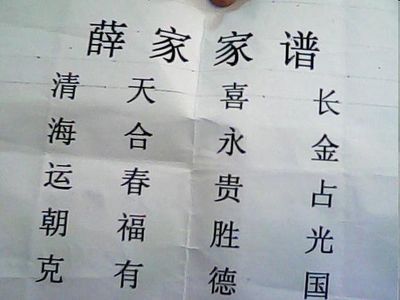 薛家家谱
清海运朝克
天合春福有
喜永贵胜德
长金占光国